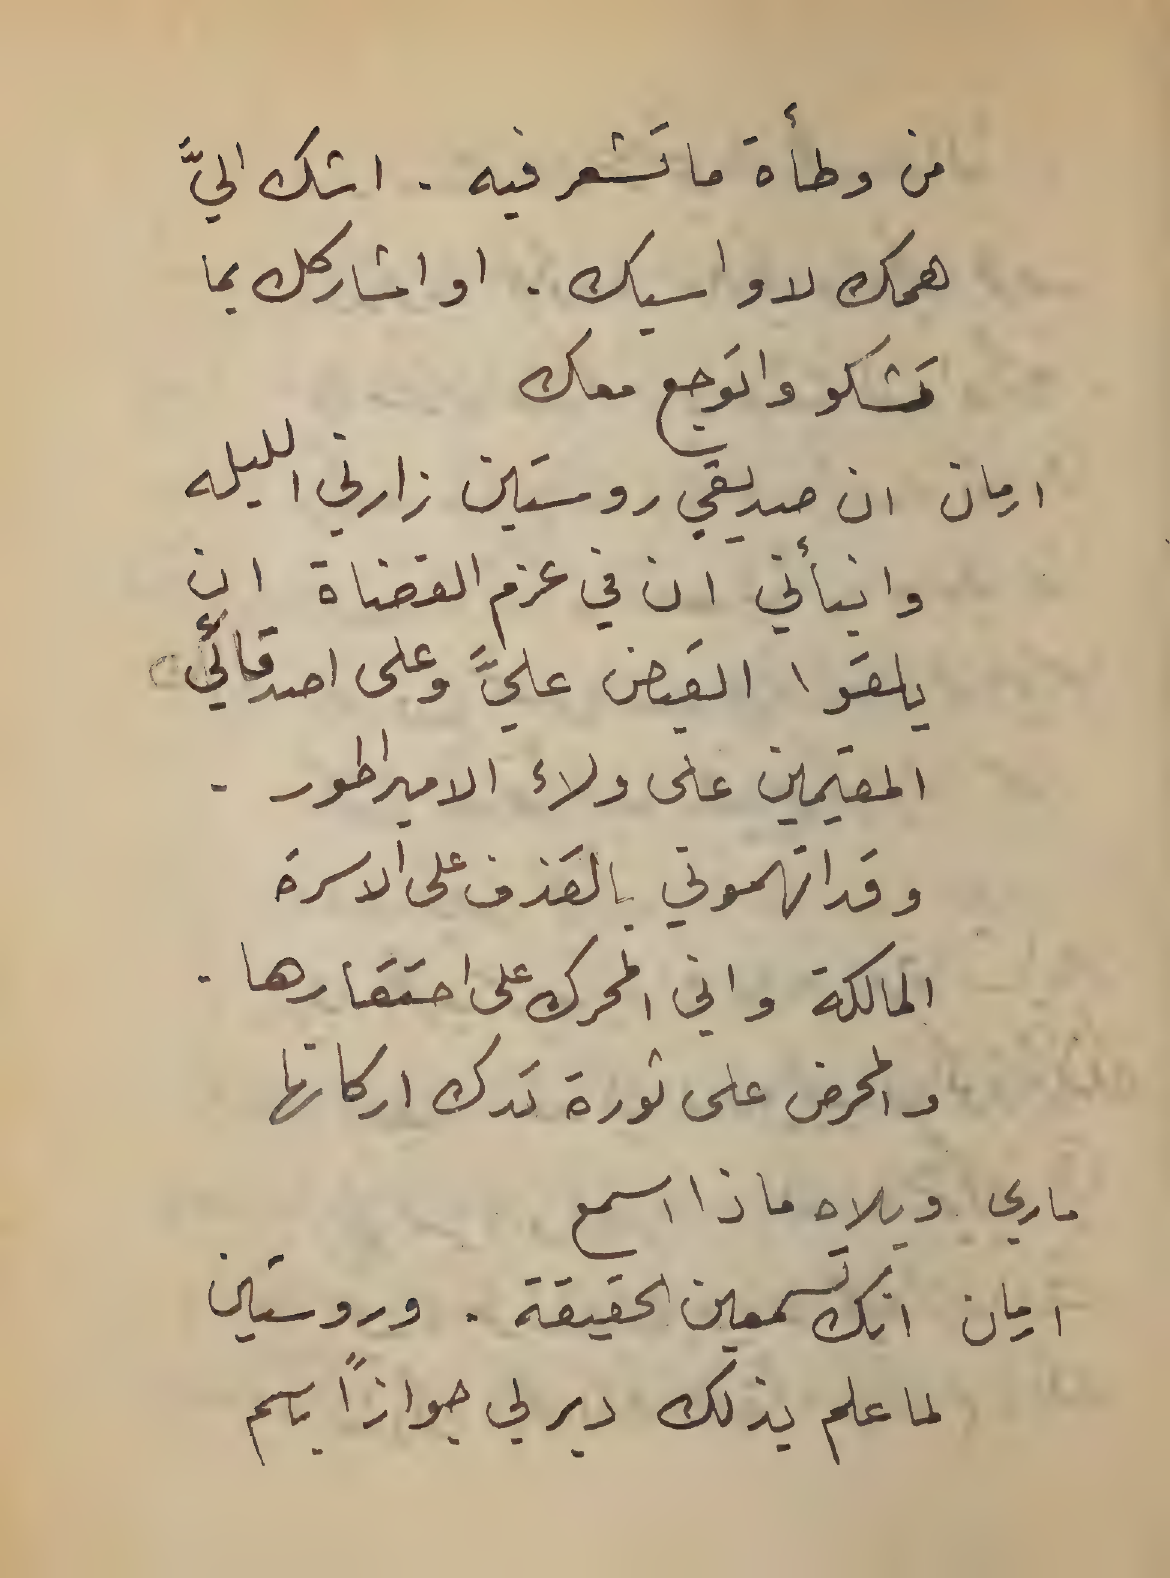 من وطأة ما تشعر فيه . اشك اليَّ
همك لاواسيك . او اشاركك بما
تشكو واتوجع معك
ارمان ان صديقي روستين زارني الليله
وانبأني ان في عزم القضاة ان
يلقوا القبض عليَّ وعلى اصدقائي
المقيمين على ولاء الامبراطور .
وقد اتهموني بالقذف على الاسرة
المالكة واني المحرك على احتقارها .
والمحرض على ثورة تدك اركانها
ماري ويلاه ماذا اسمع
ارمان انك تسمعين الحقيقة . وروستين
لما علم بذلك دبر لي جوازاً باسم